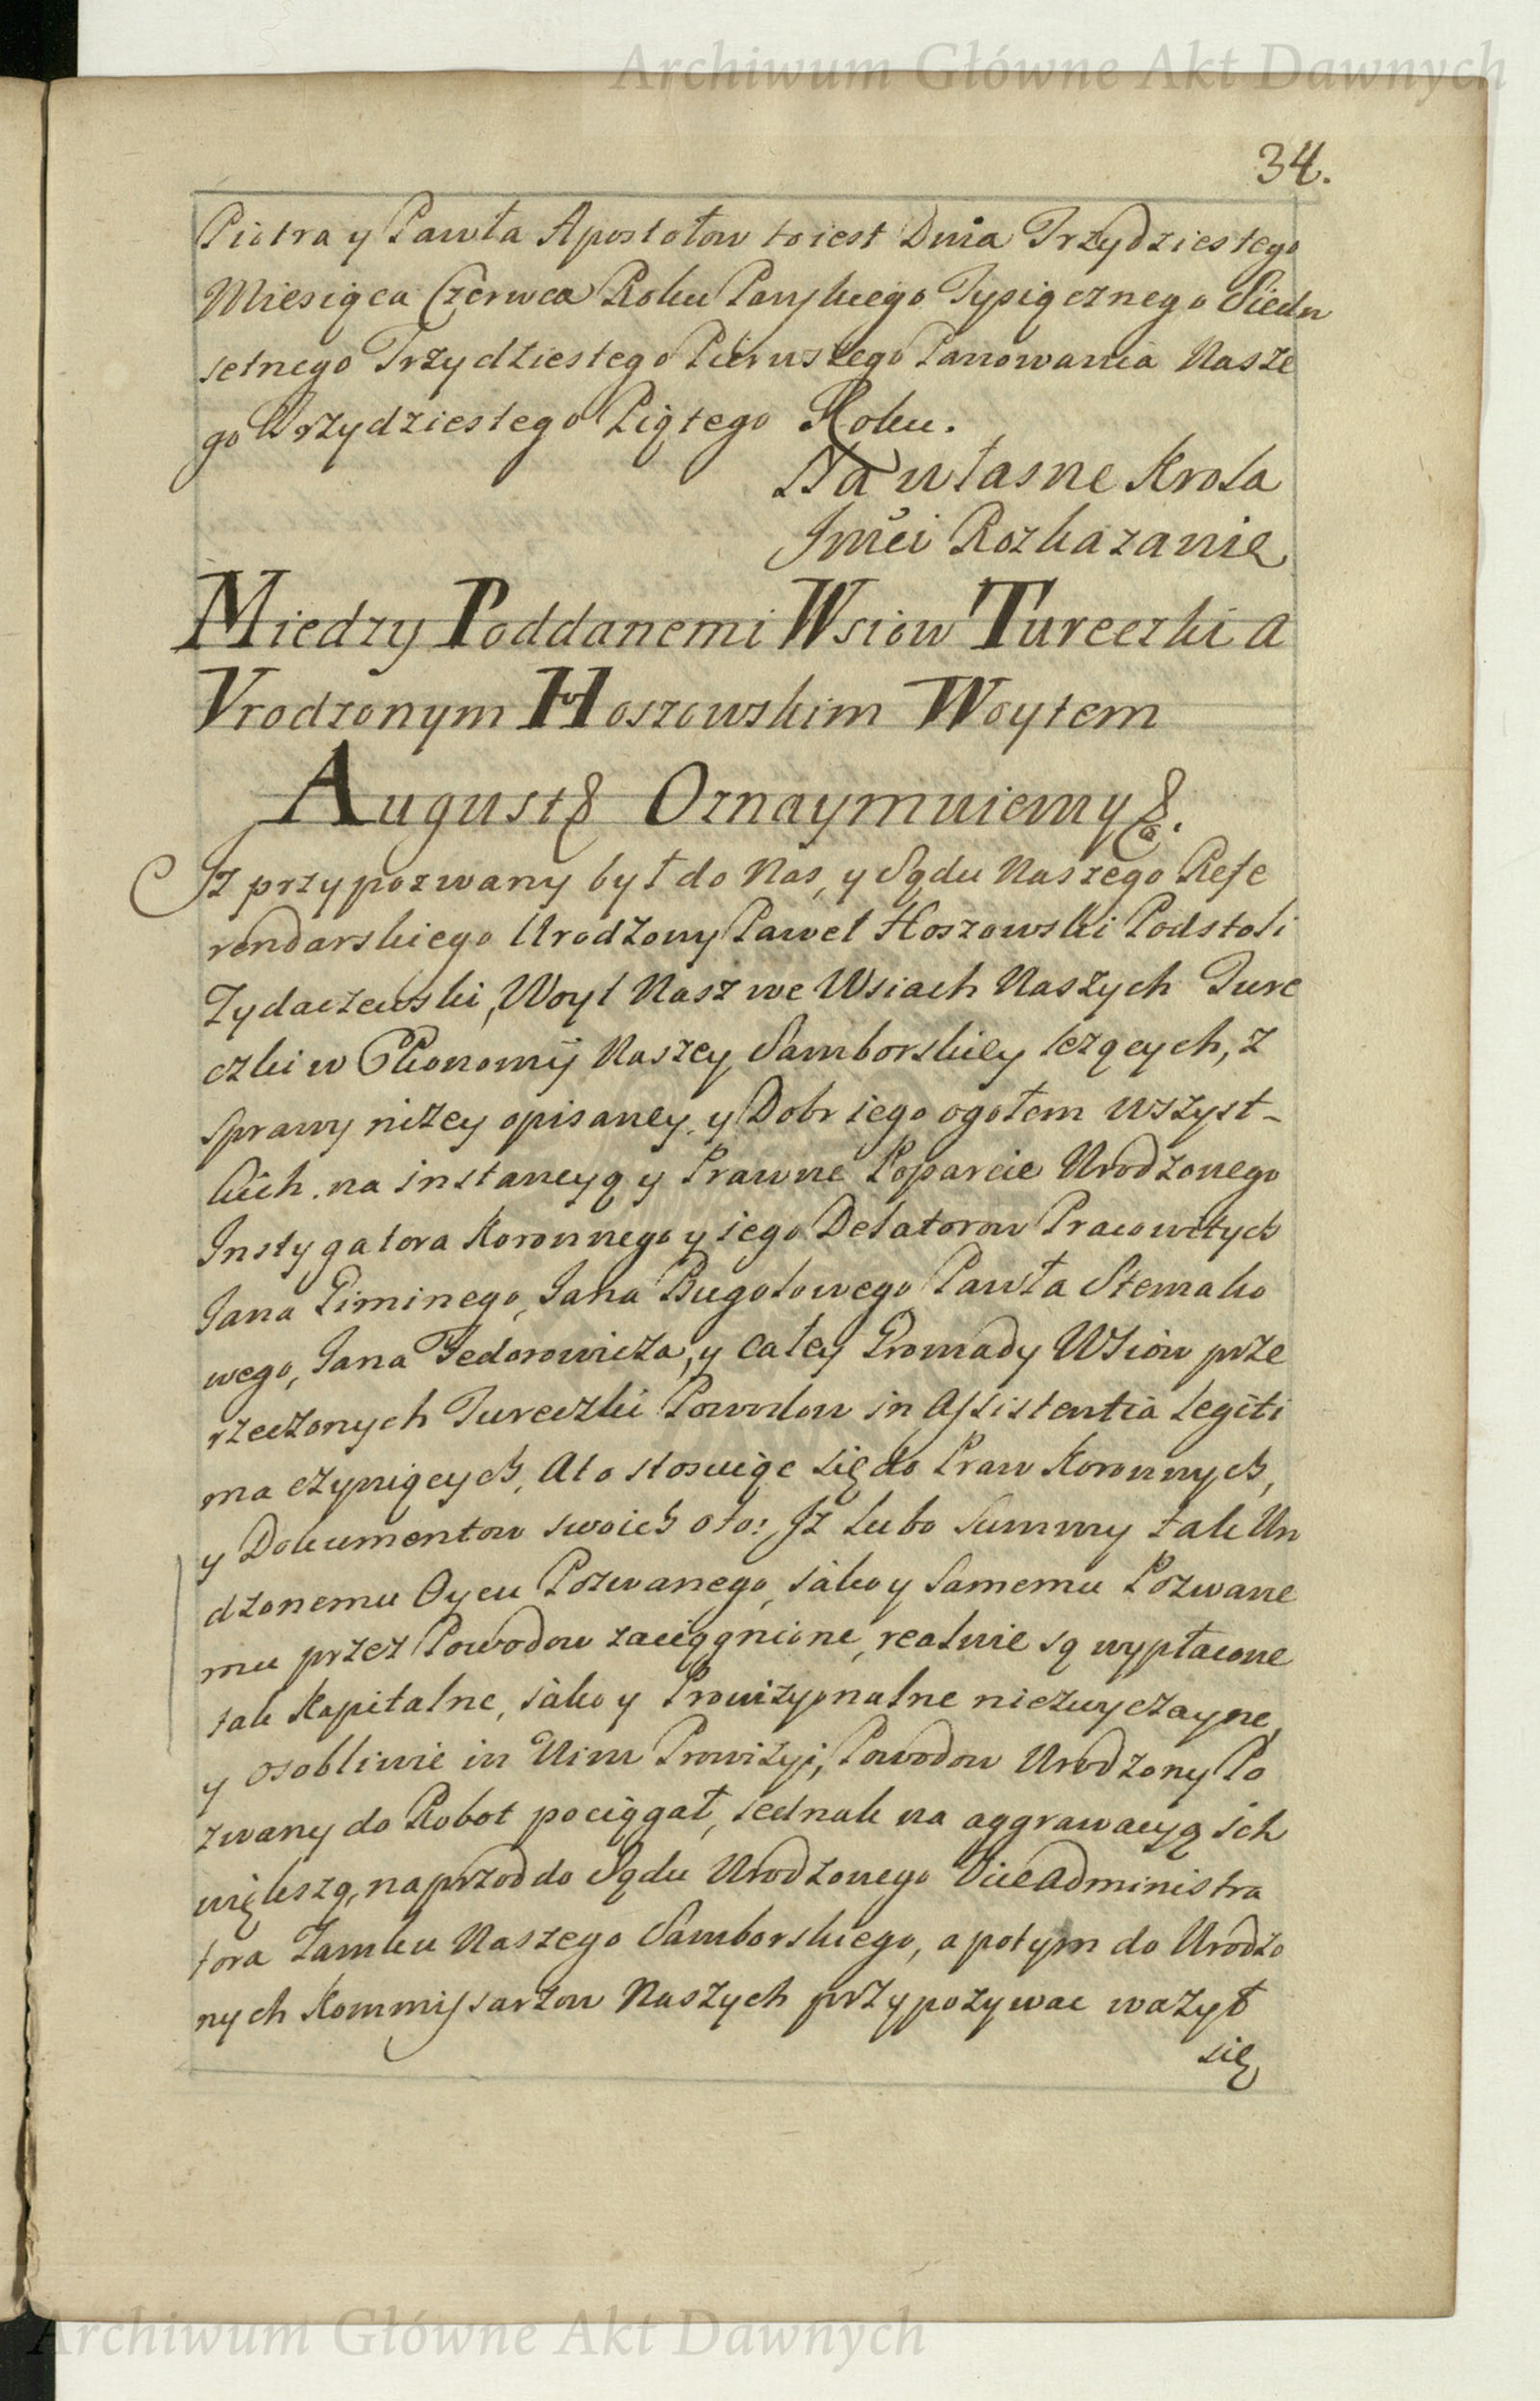 Archiwum Główne Akt Dawnych
34.
Piotra y Pawła Apostołow to iest Dnia Trzydziestego
Miesiąca Czerwca Roku Pańskiego Tysiącznego Siedm
setnego Trzydziestego Pierwszego Panowania Nasze
go Trzydziestego Piątego Roku.
Na własne Krola
Jmći Rozkazanie
Miedzy Poddanemi Wsiow Tureczki a
Vrodzonym Hoszowskim Woytem
August& Oznaymuiemy&.
Jż przypozwany był do Nas, y Sądu Naszego Refe
rendarskiego Urodzony Paweł Hoszowski Podstoli
Zydaczewski, Woyt Nasz we Wsiach Naszych Ture
czki w Ekonomij Naszey Samborskiey leżących, z
Sprawy niżey opisaney, y Dobr iego ogołem wszyst-
kich, na instancyą y Prawne Poparcie Urodzonego
Instygatora Koronnego y iego Delatorow Pracowitych
Jana Ziminego, Jana Bugolowego Pawła Stemako
wego, Jana Fedorowicza, y całey Gromady Wsiow prze
rzeczonych Tureczki Powodow in Assistentia legiti
ma czyniących, A to stosuiąc się do Praw Koronnych,
y Dokumentow swoich oto: Jż lubo Summy tak Uro
dzonemu Oycu Pozwanego, iako y Samemu Pozwane
mu przez Powodow zaciągnione, realnie są wypłacone
tak Kapitalne, iako y Prowizyonalne niezwyczayne,
y osobliwie in Vim Prowizyi, Powodow Urodzony Po
zwany do Robot pociągał, iednak na aggrawacyą ich
większą, naprzod do Sądu Urodzonego ViceAdministra
tora Zamku Naszego Samborskiego, a potym do Urodzo
nych Kommissarzow Naszych przypozywac ważył
się
Archiwum Główne Akt Dawnych